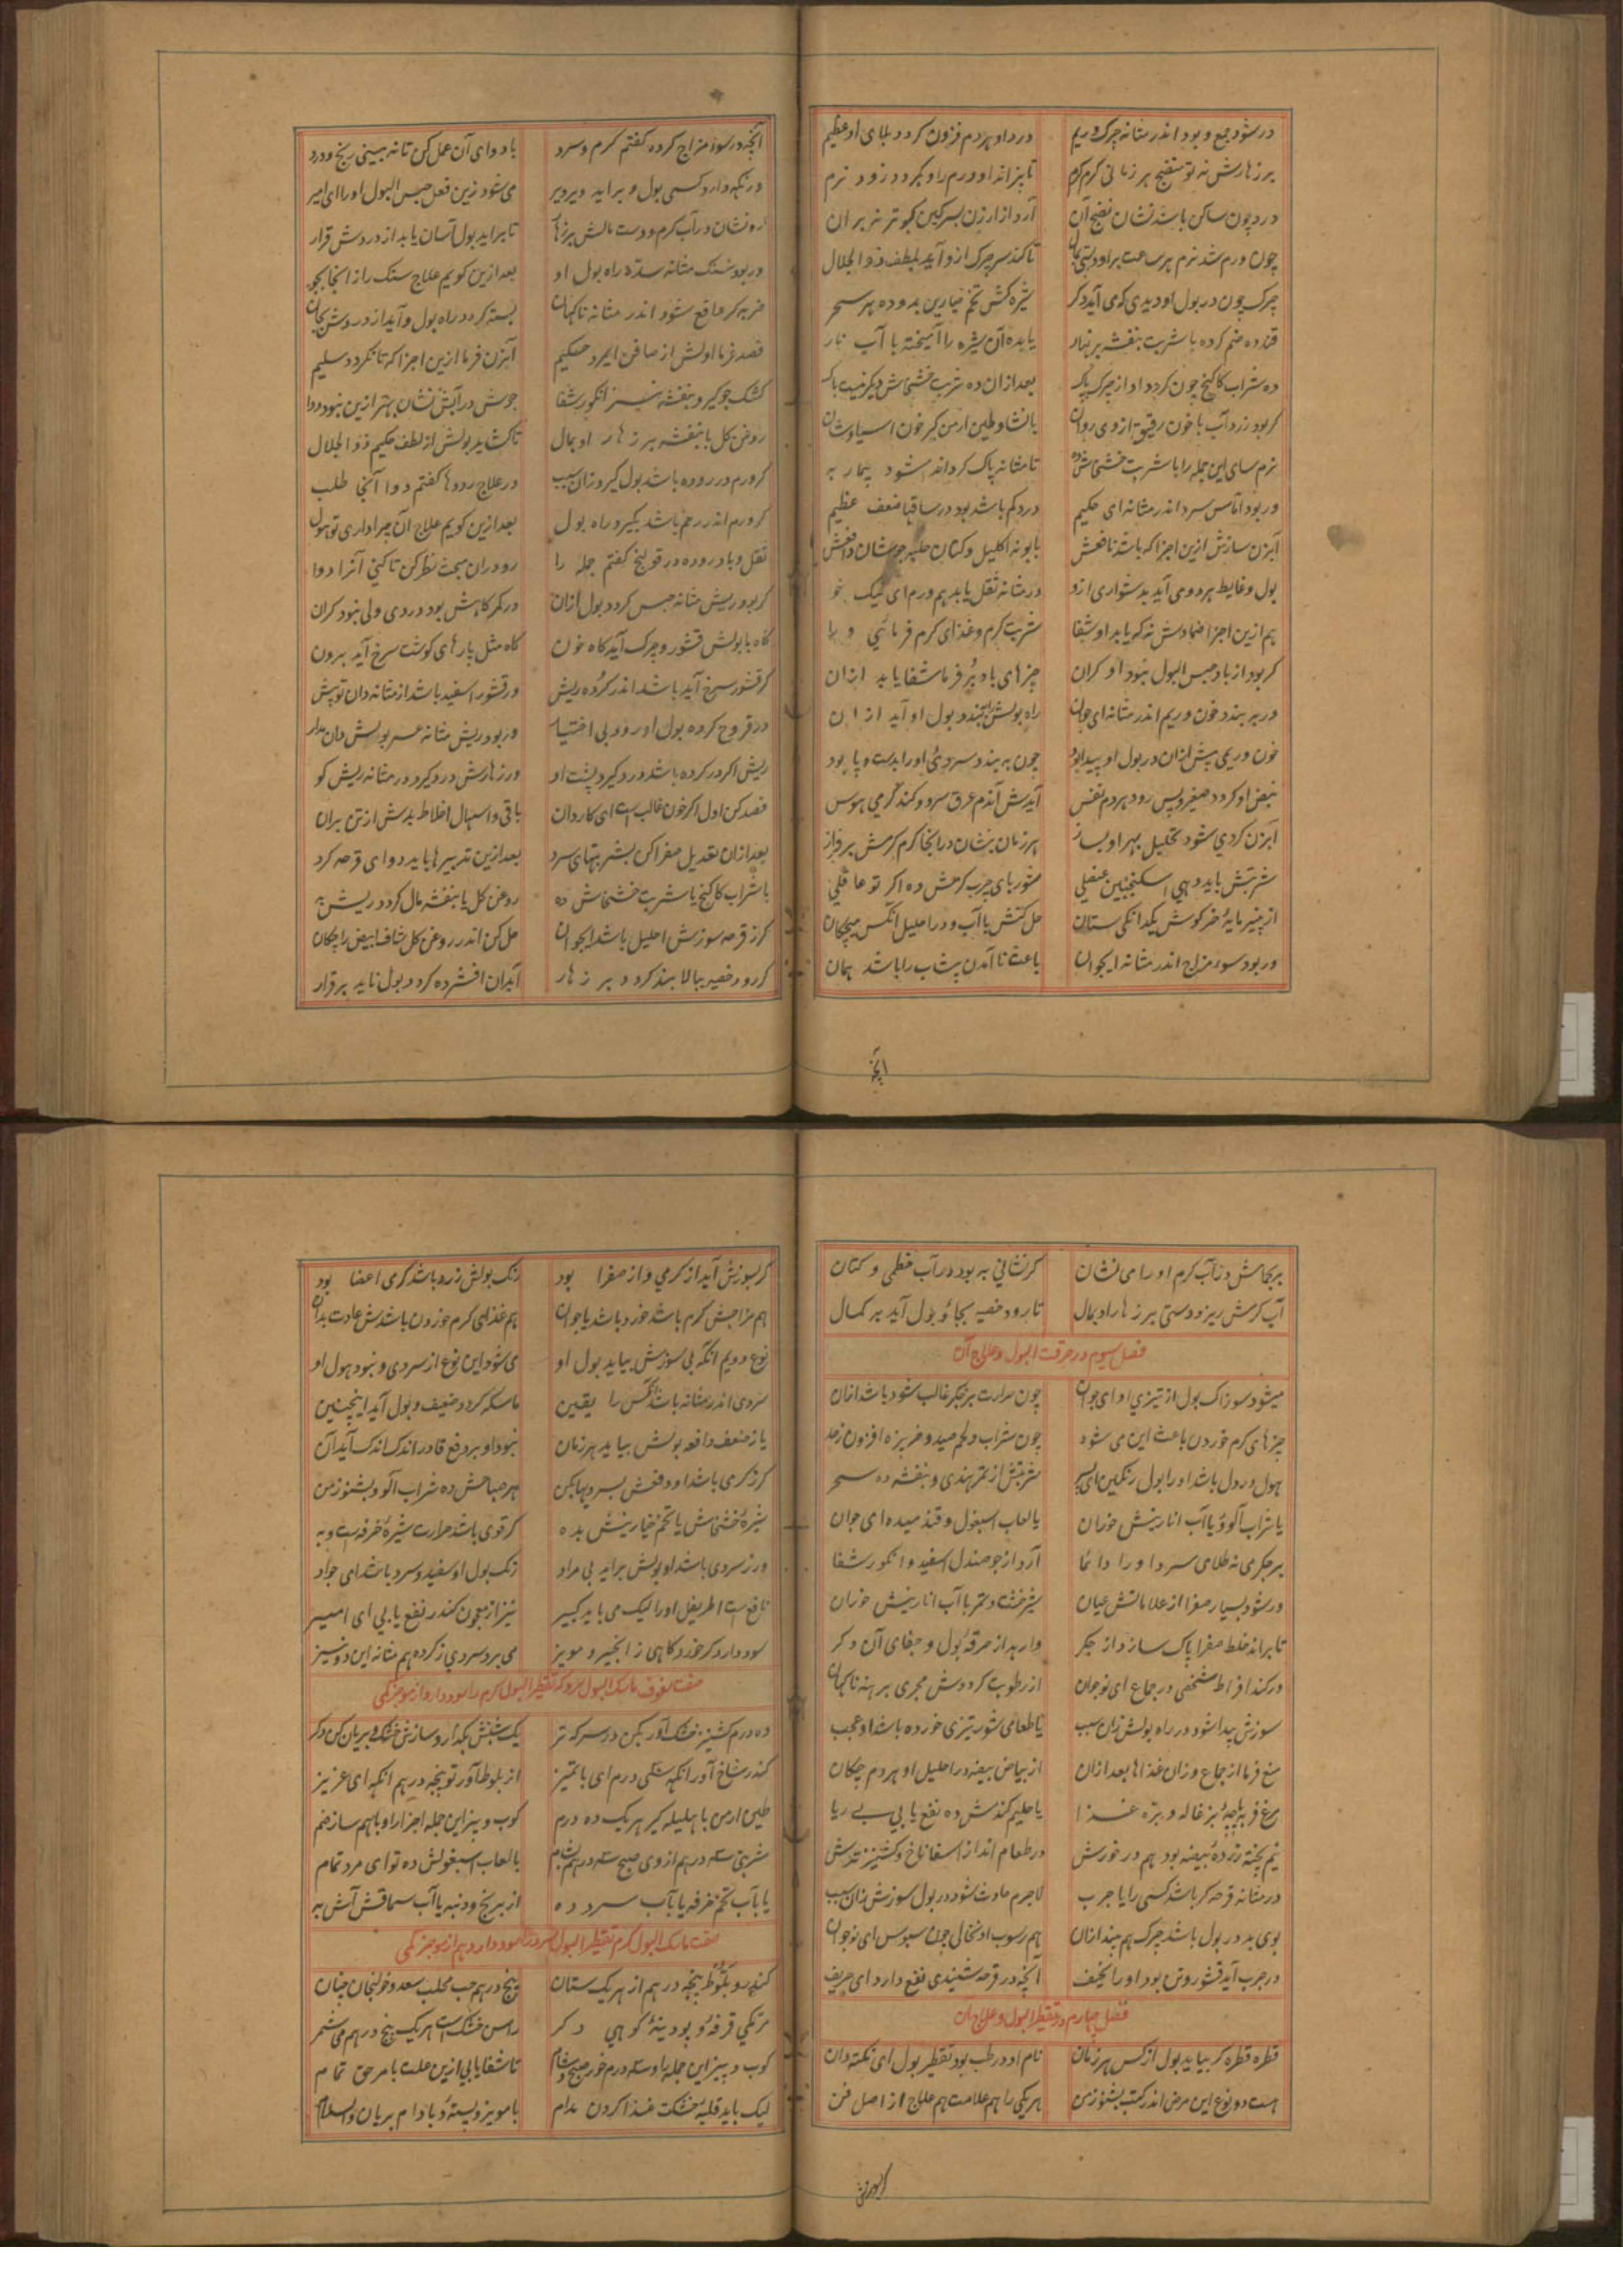 در شود جمع و بود اندر مثانه چرک و ریم درد او هر دم فزون گردد بلای او عظیم
بر زهارش نه تو منضج هر زمانی گرم گرم تا بزاند او ورم را و بگردد زود نرم
درد چون ساکن باشد نشان نضج آن آرد از ارزن بسرگین کبوتر نه بر آن
چون ورم شد نرم هر ساعت بر او تا کند سر چرک ازو آید بلطف ذو الجلال
چرک چون در بول او دیدی که می آید دگر شیره کش تخم خیارین بدو ده هر سحر
قند ده ضم کرده با شربت بنفشه بر نهار یا بده آن شیره را آمیخته با آب نار
ده شراب کاکنج چون گردد او از چرک پاک بعد ازان ده شربت خشخاش دیگر نیست باک
گر بود زرد آب با خون رقیق از وی روان با نشا و طین ارمن گیر خون اسیاوشان
نرم سای این جمله را با شربت خشخاش ده تا مثانه پاک گرداند شود بیمار به
ور بود آماس سرد اندر مثانه ای حکیم درد کم باشد بود در ساقها ضعف عظیم
آبزن سازش ازین اجزا که باشد نافعش بابونه اکلیل و کتان حلبه جوشان دافعش
بول و غایط هر دو می آید بدشواری ازو در مثانه ثقل یابد هم ورم ای نیک خو
هم ازین اجزا ضمادش نه که یابد او شفا شربت گرم و غذای گرم فرمائی ورا
گر بود از باد حبس البول نبود او گران چیزهای باد بر فرما شفا یابد ازان
در ببندد خون و ریم اندر مثانه ای جوان راه بولش بندد بول او آید ازان
خون و ریمی پیش ازان در بول او پیدا بود چون ببندد سردئی او را بدست و پا بود
نبض او گردد صغیر و پس رود هر دم نفس آیدش آندم عرق سرد و کند گرمی هوس
آبزن کردی شود تحلیل بهر او بساز هر زمان بنشان در انجا گرم گرمش بر فراز
شربتش باید دهی اسکنجبین عنصلی شوربای چرب گرمش ده اگر تو عاقلی
از پنیر مایه خرگوش یکدانگی ستان حل کنش با آب و در احلیل آنکس میچکان
ور بود سوء مزاج اندر مثانه ایجوان باعث نا آمدن پیشاب را باشد همان
انچه
آنچه در سوء مزاج گرده گفتم گرم و سرد با دوای آن عمل کن تا نه بینی رنج و درد
ور نگه دارد کسی بول و بر اید دیر دیر می شود زین فعل حبس البول او را ای امیر
رو نشان در آب گرم و دست مالش بر زهار تا براید بول آسان یابد از دردش قرار
ور بود سنگ مثانه سده راه بول او بعد ازین گویم علاج سنگ را ز انجا بجو
ضربه گر واقع شود اندر مثانه ناگهان بسته گردد راه بول و آید از دردش بجان
فصد فرما اولش از صافن ایمرد حکیم آبزن فرما ازین اجزا که تا گردد سلیم
کشک جو گیر و بنفشه نیز انگور شفا جوش در آبش نشان بهتر ازین نبود دوا
روغن گل با بنفشه بر زهار او بمال تا کشاید بولش از لطف حکیم ذو الجلال
گر ورم در روده باشد بول گیرد زان سبب در علاج رودها گفتم دوا آنجا طلب
گر ورم اندر رحم باشد بگیرد راه بول بعد ازین گویم علاج آن چرا داری تو هول
ثقل و باد روده در قولنج گفتم جمله را رو دران مبحث نظر کن تا کنی آنرا دوا
گر بود ریش مثانه حبس گردد بول ازان در کمر گاهش بود دردی ولی نبود گران
گاه با بولش قشور و چرک آید گاه خون گاه مثل پارهای گوشت سرخ آید برون
گر قشور سرخ آید باشد اندر گرده ریش ور قشور اسفید باشد از مثانه دان تو پیش
در قروح گرده بول او رود بی اختیار ور بود ریش مثانه عسر بولش دان مدار
ریش اگر در گرده باشد درد گیرد پشت او ور زهارش درد گیرد در مثانه ریش گو
فصد کن اول اگر خون غالب است ای کاردان باقی و اسهال اخلاط بدش از تن بران
بعد ازان تعدیل صفرا کن بشربتهای سرد بعد ازین تدبیرها باید دوای قرحه کرد
با شراب کاکنج یا شربت خشخاش ده روغن گل یا بنفشه مال گردد ریش به
گر ز قرحه سوزش احلیل باشد ایجوان حل کن اندر روغن گل شاف ابیض را چکان
گر رود خصیه ببالا بند گردد بر زهار آبدان افشرده گردد بول ناید بر قرار
بر بجاش در آب گرم او را می نشان گر نشانی به بود در آب خطمی و کتان
آب گرمش ریز و دستی بر زهار او بمال تا رود خصیه بجا و بول آید بر کمال
فصل سیوم در حرقت البول و علاج آن
میشود سوزاک بول از تیزی او ای جوان چون حرارت بر جگر غالب شود باشد ازان
چیزهای گرم خوردن باعث این می شود چون شراب و لحم صید و خربزه افزون ز حد
هول در دل باشد او را بول رنگین ای پسر شربتش از تمر هندی و بنفشه ده سحر
یا شراب آلو و یا آب انارینش خوران یا لعاب اسبغول و قند میده ای جوان
بر جگر می نه طلای سرد او را دائما آرد از جو صندل اسفید و انگور شفا
ور شود بسیار صفرا از علاماتش عیان شیرخشت و تمر با آب انارینش خوران
تا براند خلط صفرا پاک سازد از جگر وا رهد از حرقه بول و جفای آن دگر
ور کند افراط شخصی در جماع ای نوجوان از رطوبت گرددش مجری برهنه ناگهان
سوزش پیدا شود در راه بولش زان سبب یا طعامی شور تیزی خورده باشد او عجب
منع فرما از جماع و زان غذاها بعد ازان از بیاض بیضه در احلیل او هر دم چکان
مرغ فربه پاچه بزغاله و بره غذا یا حلیم گندمش ده نفع یابی بی ریا
نیم پخته زرده بیضه بود هم در خورش در طعام انداز اسفاناخ و کشنیز ترش
در مثانه قرحه گر باشد کسی را یا جرب لاجرم حادث شود در بول سوزش زان سبب
بوی بد در بول باشد چرک هم بیند ازان هم رسوب او نخالی چون سبوس ای نوجوان
در جرب آید قشور و تن بود او را نحیف آنچه در قرحه شنیدی نفع دارد ای حریف
فصل چهارم در تقطیر البول و علاج آن
قطره قطره گر بیاید بول از کس هر زمان نام او در طب بود تقطیر بول ای نکته دان
هست دو نوع این مرض اندر کتب بشنو ز من هر یکی را هم علامت هم علاج از اصل فن
گر بسوزش
گر بسوزش آید از گرمی و از صفرا بود رنگ بولش زرد باشد گرمی اعضا بود
هم مزاجش گرم باشد خورد باشد یا جوان هم غذای گرم خوردن باشدش عادت بدان
نوع دویم آنکه بی سوزش بیاید بول او می شود این نوع از سردی و نبود هول او
سردی اندر مثانه باشد آنکس را یقین ماسکه گردد ضعیف و بول آید اینچنین
یا ز ضعف دافعه بولش بیاید هر زمان نبود او بر دفع قادر اندک اندک آید آن
گر ز گرمی باشد او دفعش بسردیها بکن هر صباحش ده شراب آلو و بشنو ز من
شیره خشخاش یا تخم خیارینش بده گر قوی باشد حرارت شیره خرفه است و به
ور ز سردی باشد او بولش براید بی مراد رنگ بول او سفید و سرد باشد ای جواد
نافع است اطریفل او را لیک می باید کبیر نیز از معجون کندر نفع یابی ای امیر
سود دارد گر خورد گاهی ز انجیر و مویز می برد سردی ز گرده هم مثانه این دو نیز
صفت سفوف ماسک البول سرد که تقطیر البول گرم را سود دارد از موجز مکی
ده درم کشنیز خشک آور بکن در سرکه تر یک شبش بگذار و سازش خشک و بریان کن دگر
کندر شاخ آور آنگه سنگی درم ای با تمیز از بلوط آور تو پنجه درهم آنگه ای عزیز
طین ارمن با هلیله گیر هر یک ده درم کوب و بیز این جمله اجزا را و باهم ساز ضم
شربتی سه درهم از وی صبح سه درهم بشام با لعاب اسبغولش ده تو ای مرد تمام
یا بآب تخم خرفه یا بآب سرد ده از برنج و دنبه یا آب سماقش آش به
صفت ماسک البول گرم تقطیر البول سرد را سود دارد هم از موجز مکی
کندر و بلوط پنجه درهم از هر یک ستان پنج درهم حب محلب سعد و خولنجان چنان
قرفه و پودینه کوهی دگر راسن خشک است هر یک پنج درهم می شمر
کوب و بیز این جمله را و سه درم خور صبح و شام تا شفا یابی ازین علت بامر حق تمام
لیک باید قلیه خشکت غذا کردن مدام با مویز و پسته و بادام بریان والسلام